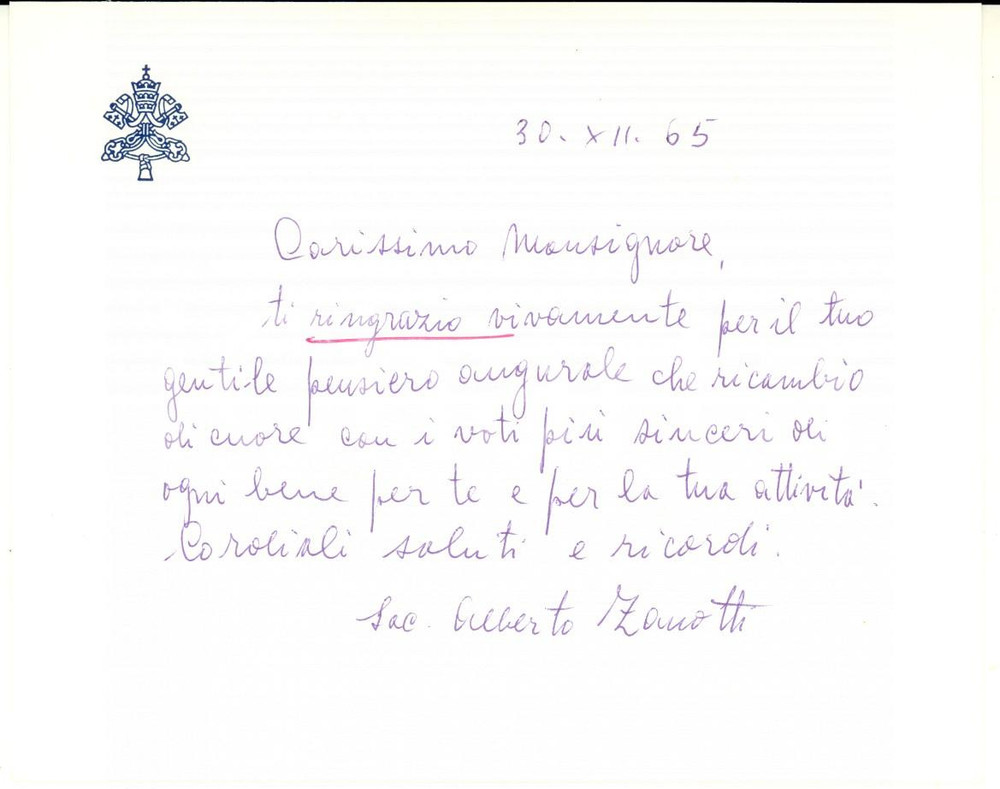 30. XII. 65
Carissimo Monsignore,
ti ringrazio vivamente per il tuo
gentile pensiero augurale che ricambio
di cuore con i voti più sinceri di
ogni bene per te e per la tua attività.
Cordiali saluti e ricordi.
Sac. Alberto Zanotti